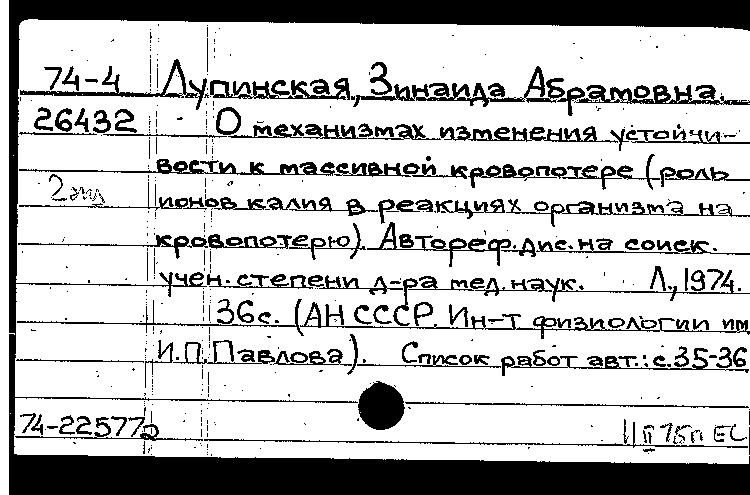 74-4 Лупинская, Зинаида Абрамовна.
26432 О механизмах изменения устойчи-
вости к массивной кровопотере (роль
2 экз
ионов калия в реакциях организма на
кровопотерю). Автореф.дис.на соиск.
учен.степени д-ра мед.наук. Л.,1974.
36с. (АН СССР. Ин-т физиологии им
И.П.Павлова). Список работ авт.: с.35-36
74-22577а